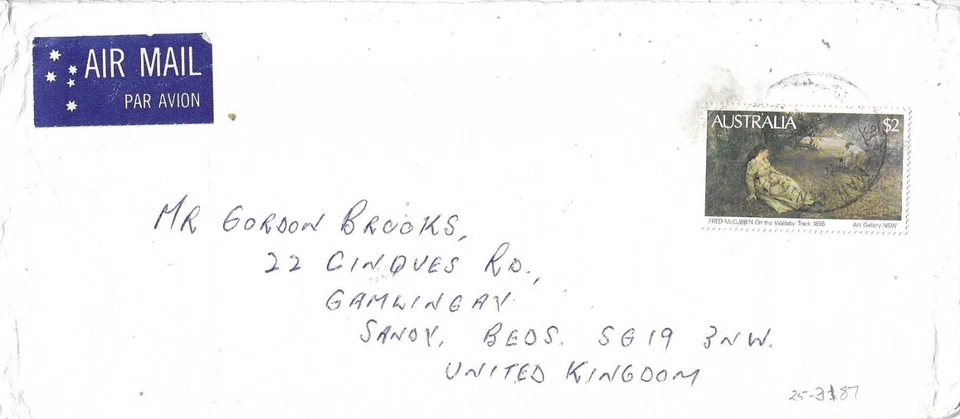 AIR MAIL
PAR AVION
AUSTRALIA $2
FRED McCUBBIN On the Wallaby Track 1896 Art Gallery NSW
MR GORDON BROOKS,
22 CINQUES RD.,
GAMLINGAY
SANDY, BEDS. SG19 3NW.
UNITED KINGDOM